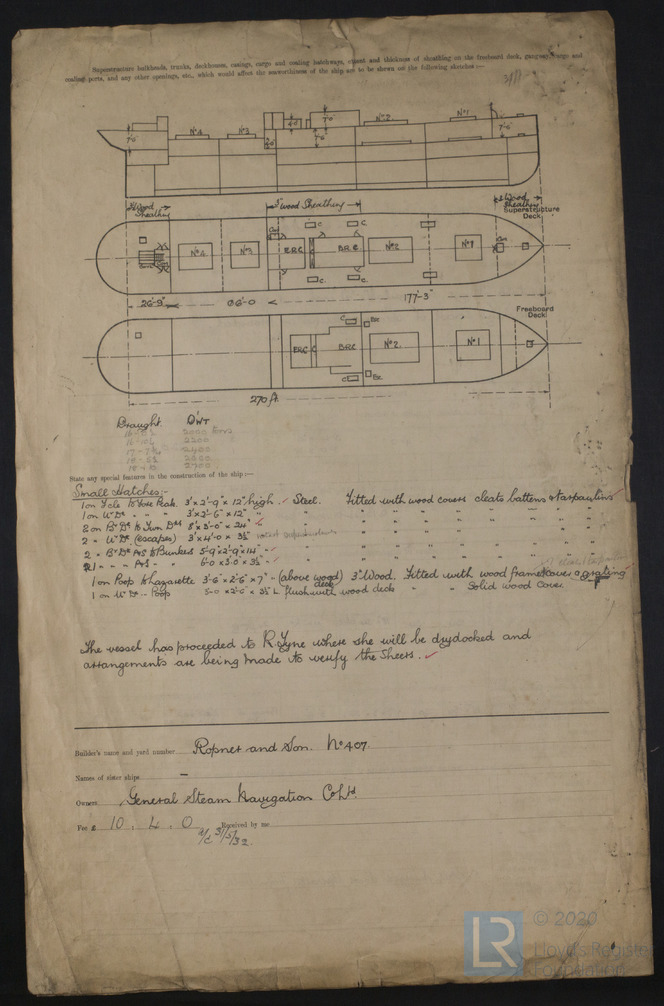 Superstructure bulkheads, trunks, deckhouses, casings, cargo and coaling hatchways, extent and thickness of sheathing on the freeboard deck, gangway, cargo and
coaling ports, and any other openings, etc., which would affect the seaworthiness of the ship are to be shown on the following sketches:—
No 4 No 3 No 2 No 1
7'-0" 4-0 7'-0" 7'-6" 7'-6"
Wood Sheathing
3" Wood Sheathing
Wood Sheathing
Superstructure Deck
No 4 No 3 E.R.C B.R.C No 2 No 1
C C C C
26'-9" 66'-0 177'-3"
Freeboard Deck
E.R.C C B.R.C No 2. No 1
C C
270 ft.
Draught. DWT
2000 Tons
2200
2400
2600
State any special features in the construction of the ship:—
Small Hatches:-
1 on Fcle to Fore Peak. 3' x 2'-9" x 12" high. Steel. Fitted with wood covers cleats battens & tarpaulins
1 on Ur Dk 3' x 2'-6" x 12" " " " " "
2 on Br Dk to Twn Dk 8' x 3'-0" x 24" " " " " "
2 " Ur Dk (escapes) 3' x 4'-0 x 3½"
2 " Br Dk P&S to Bunkers 5'-9" x 2'-9" x 14" " " " "
1 " " " P&S " " 6'-0 x 3'-0" x 3½" " " " "
1 on Poop to Lazarette 3'-6" x 2'-6" x 7" - (above wood deck) 3" Wood. Fitted with wood frame cover & grating
1 on Ur Dk - Poop 5-0 x 2'-6" x 3½ L flush with wood deck " Solid wood cover.
The vessel has proceeded to R. Tyne where she will be drydocked and
arrangements are being made to verify the Sheers.
Builder's name and yard number Ropner and Son. No 407.
Names of sister ships —
Owners General Steam Navigation Co Ltd
Fee £ 10 . 4 . 0 Received by me
3/5/32.
LR © 2020
Lloyd's Register
Foundation